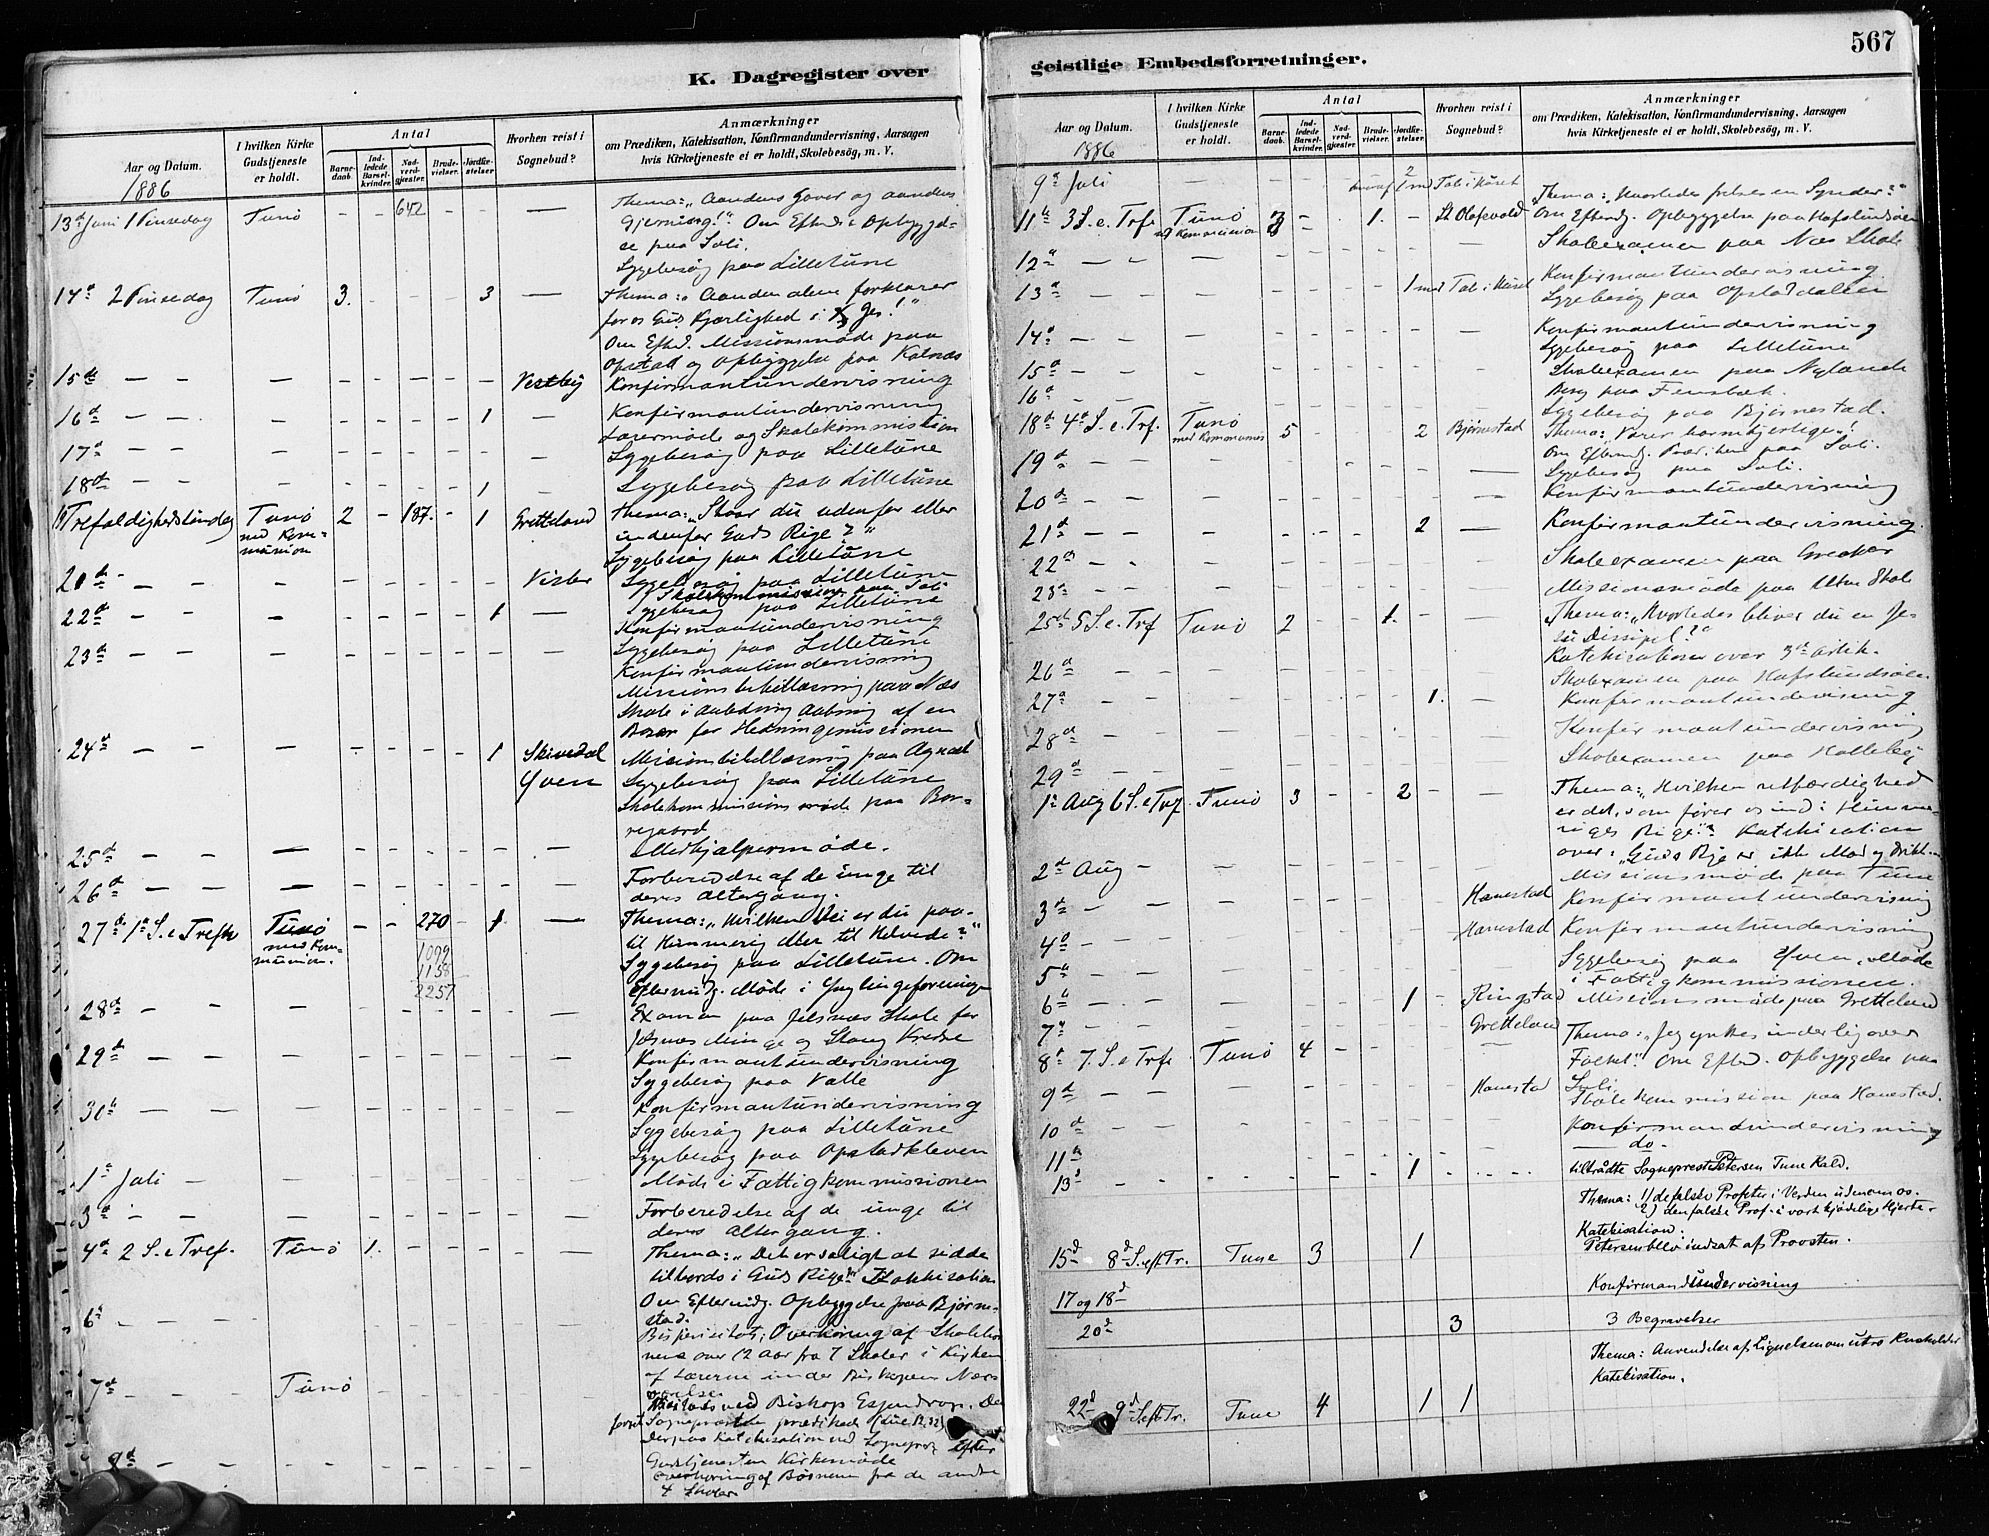 K. Dagregister over
Aar og Datum.
1886
I hvilken Kirke Gudstjeneste er holdt.
Antal
Barnedaab.
Indledede Barselkvinder.
Nadverdgjæster.
Brudevielser.
Jordfæstelser
Hvorhen reist i Sognebud?
Anmærkninger
om Prædiken, Katekisation, Konfirmandundervisning, Aarsagen
hvis Kirketjeneste ei er holdt, Skolebesøg, m. V.
13d Juni 1 Pinsedag Tunø - - 642 - - — Thema: "Aandens Gaver og aandens
Gjerning!" Om Efterd. Opbyggel-
se paa Soli.
Sygebesøg paa Lilletune
14d 2 Pinsedag Tunø 3. - - - 3 — Thema: "Aanden alene forklarer
for os Guds Kjærlighed i X Jes!"
Om Efterd. Missionsmøde paa
Opstad og opbyggelse paa Kalnæs
15de — — — - - - - - Vestby Konfirmantundervisning
16d — — — - - - - 1 — Konfirmantundervisning
Lærermøde og Skolekommission
17d — — — - - - - - — Sygebesøg paa Lilletune
18de — — — - - - - 1 - Sygebesøg paa Lilletune
Trefoldighedsøndag Tunø 2 - 187. - 1 Gretteland Thema: "Staar du udenfor eller
med Kom-
munion
indenfor Guds Rige?"
Sygebesøg paa Lilletune
20de — — - - - - - - Vister Sygebesøg paa Lilletune
Skolekommission paa Soli
22de — — - - - - - 1 — Sygebesøg paa Lilletune
Konfirmantundervisning
23de — — — - - - - - — Sygebesøg paa Lilletune
Konfirmantundervisning
Missionsbibellæsning paa Næs
Skole i anledning aabning af en
Bazar for Hedningemissionen
24d — — — - - - - 1 Skivedal Missionsbibellæsning paa Agnalt
Yven Sygebesøg paa Lilletune
Skolekommissionsmøde paa Bor-
regaard
25de — — — - - - - - — Medhjælpermøde.
26d — — — - - - - - — Forberedelse af de unge til
deres altergang.
27de 1ste S. e Trefh Tunø - - 270 - 1 — Thema: "Hvilken Vei er du paa-
med Kom-
munion.
til Himmerig eller til Helvede?"
1099
1158
2257
Sygebesøg paa Lilletune. Om
Eftermidg. Møde i Ynglingeforeningen
28d — — — Examen paa Jelsnæs Skole for
Jelsnæs Minge og Stang Kredse
29de — — — Konfirmantundervisning
Sygebesøg paa Valle
30d — — — Konfirmantundervisning
Sygebesøg paa Lilletune
Sygebesøg paa Opstadkleven
1d Juli — — Møde i Fattigkommissionen
3d — — — Forberedelse af de unge til
deres Altergang.
4d 2 S. e Tref. Tunø 1. Thema: "Det er saligt at sidde
tilbords i Guds Rige" Katekisation
Om Eftermidg. Opbyggelse paa Bjørne-
stad.
6d — — — Bispevisitats; Overhøring af Skolebør-
nene over 12 Aar fra 7 Skoler i Kirken
af Lærerne under Biskopens Nær-
værelse
7d — — Tunø Visitats ved Biskop Essendrop. Den
Sognepræsten prædikede (Luc 12,32)
Derpaa Katekisation ved Sognepr. Efter
Gudstjenesten Kirkemøde
8d — — — overhøring af Børnene fra de andre
4 Skoler
567
geistlige Embedsforretninger.
Aar og Datum.
1886
I hvilken Kirke Gudstjeneste er holdt.
Antal
Barnedaab.
Indledede Barselkvinder.
Nadverdgjæster.
Brudevielser.
Jordfæstelser.
Hvorhen reist i Sognebud?
Anmærkninger
om Prædiken, Katekisation, Konfirmandundervisning, Aarsagen
hvis Kirketjeneste ei er holdt, Skolebesøg, m. V.
9d Juli — — — 1 med Tale i Huset
Thema: "Hvorledes frelses en Synder?"
11te 3 S. e. Trfr Tunø 3 - 1. - St Olafsvold Om Efterdg. Opbyggelse paa Hafslundsøen
med Kommunion
12d — — — Skoleexamen paa Næs Skole
Konfirmantundervisning
13d — — — 1 med Tale i Huset Sygebesøg paa Opstaddalen
14d — — — Konfirmantundervisning
Sygebesøg paa Lilletune
15d — — — Skoleexamen paa Nylands
16d — — — Besøg paa Fensbæk
Sygebesøg paa Bjørnestad.
18de 4d S. e. Trf. Tunø 5 - - - 2 Bjørnestad Thema: "Værer barmhjertige"!
med Kommunion
Om Eftermdg. Prædiken paa Soli.
19d — — — Sygebesøg paa Soli.
20de — — — Konfirmantundervisning
21de — — — 2 — Konfirmantundervisning.
22de — — Skoleexamen paa Greaker
23de — — Missionsmøde paa Alvim Skole
25de 5 S. e. Trf Tunø 2 - - 1. - — Thema: "Hvorledes bliver du en Je-
su Discipel?"
Katekisation over 3de Artik.
26d — — — Skolexamen paa Hafslundsøen
27d — — — 1. Konfirmantundervisning
28d — — — Konfirmantundervisning
29d — — — Skolexamen paa Halleby
1ste Aug 6 S. e Trf. Tunø 3 - - 2 - — Thema: "Hvilken retfærdighed
er det, som fører os ind i Himme-
riges Rige"? Katekisation
over: "Guds Rige er ikke Mad og Drikke
2d Aug — — Missionsmøde paa Tune
3d — — — Hanestad Konfirmantundervisning
4d — — — Hanestad Konfirmantundervisning
5d — — — Sygebesøg paa Yven, Møde
i Fattigkommissionen.
6d — — — 1 - Ringstad Missionsmøde paa Gretteland
7d — — — Gretteland
Thema: "Jeg ynkes inderlig over
8d 7. S. e Trfr Tunø 4 - Folket" Om Efterd. Opbyggelse paa
Soli
9d — — — Hanestad Skolekommission paa Hanestad.
10d — — — Konfirmandundervisning
11d — — — do -
13d — — — 1 tiltraadte Sogneprest Petersen Tune Kald.
Thema: 1) de falske Profeter i Verden udenom os.
2) den falske Prof. i vort kjødelige Hjerte.
Katekisation.
15d 8d S. eft Tr. Tune 3 1 Petersen blev indsat af Provsten.
17 og 18d Konfirmandundervisning
20d 3 3 Begravelser
Thema: Anvendelse af Lignelsen om utro Husholder
Katekisation.
22d 9d S. eft Tr. Tune 4 1 1